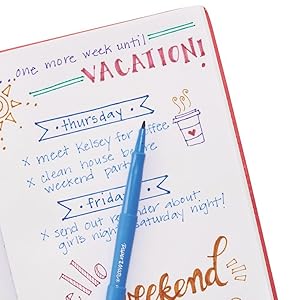 ...one more week until
VACATION!
thursday
x meet Kelsey for coffee
x clean house before
weekend party
friday
x send out reminder about
girls night saturday night!
weekend